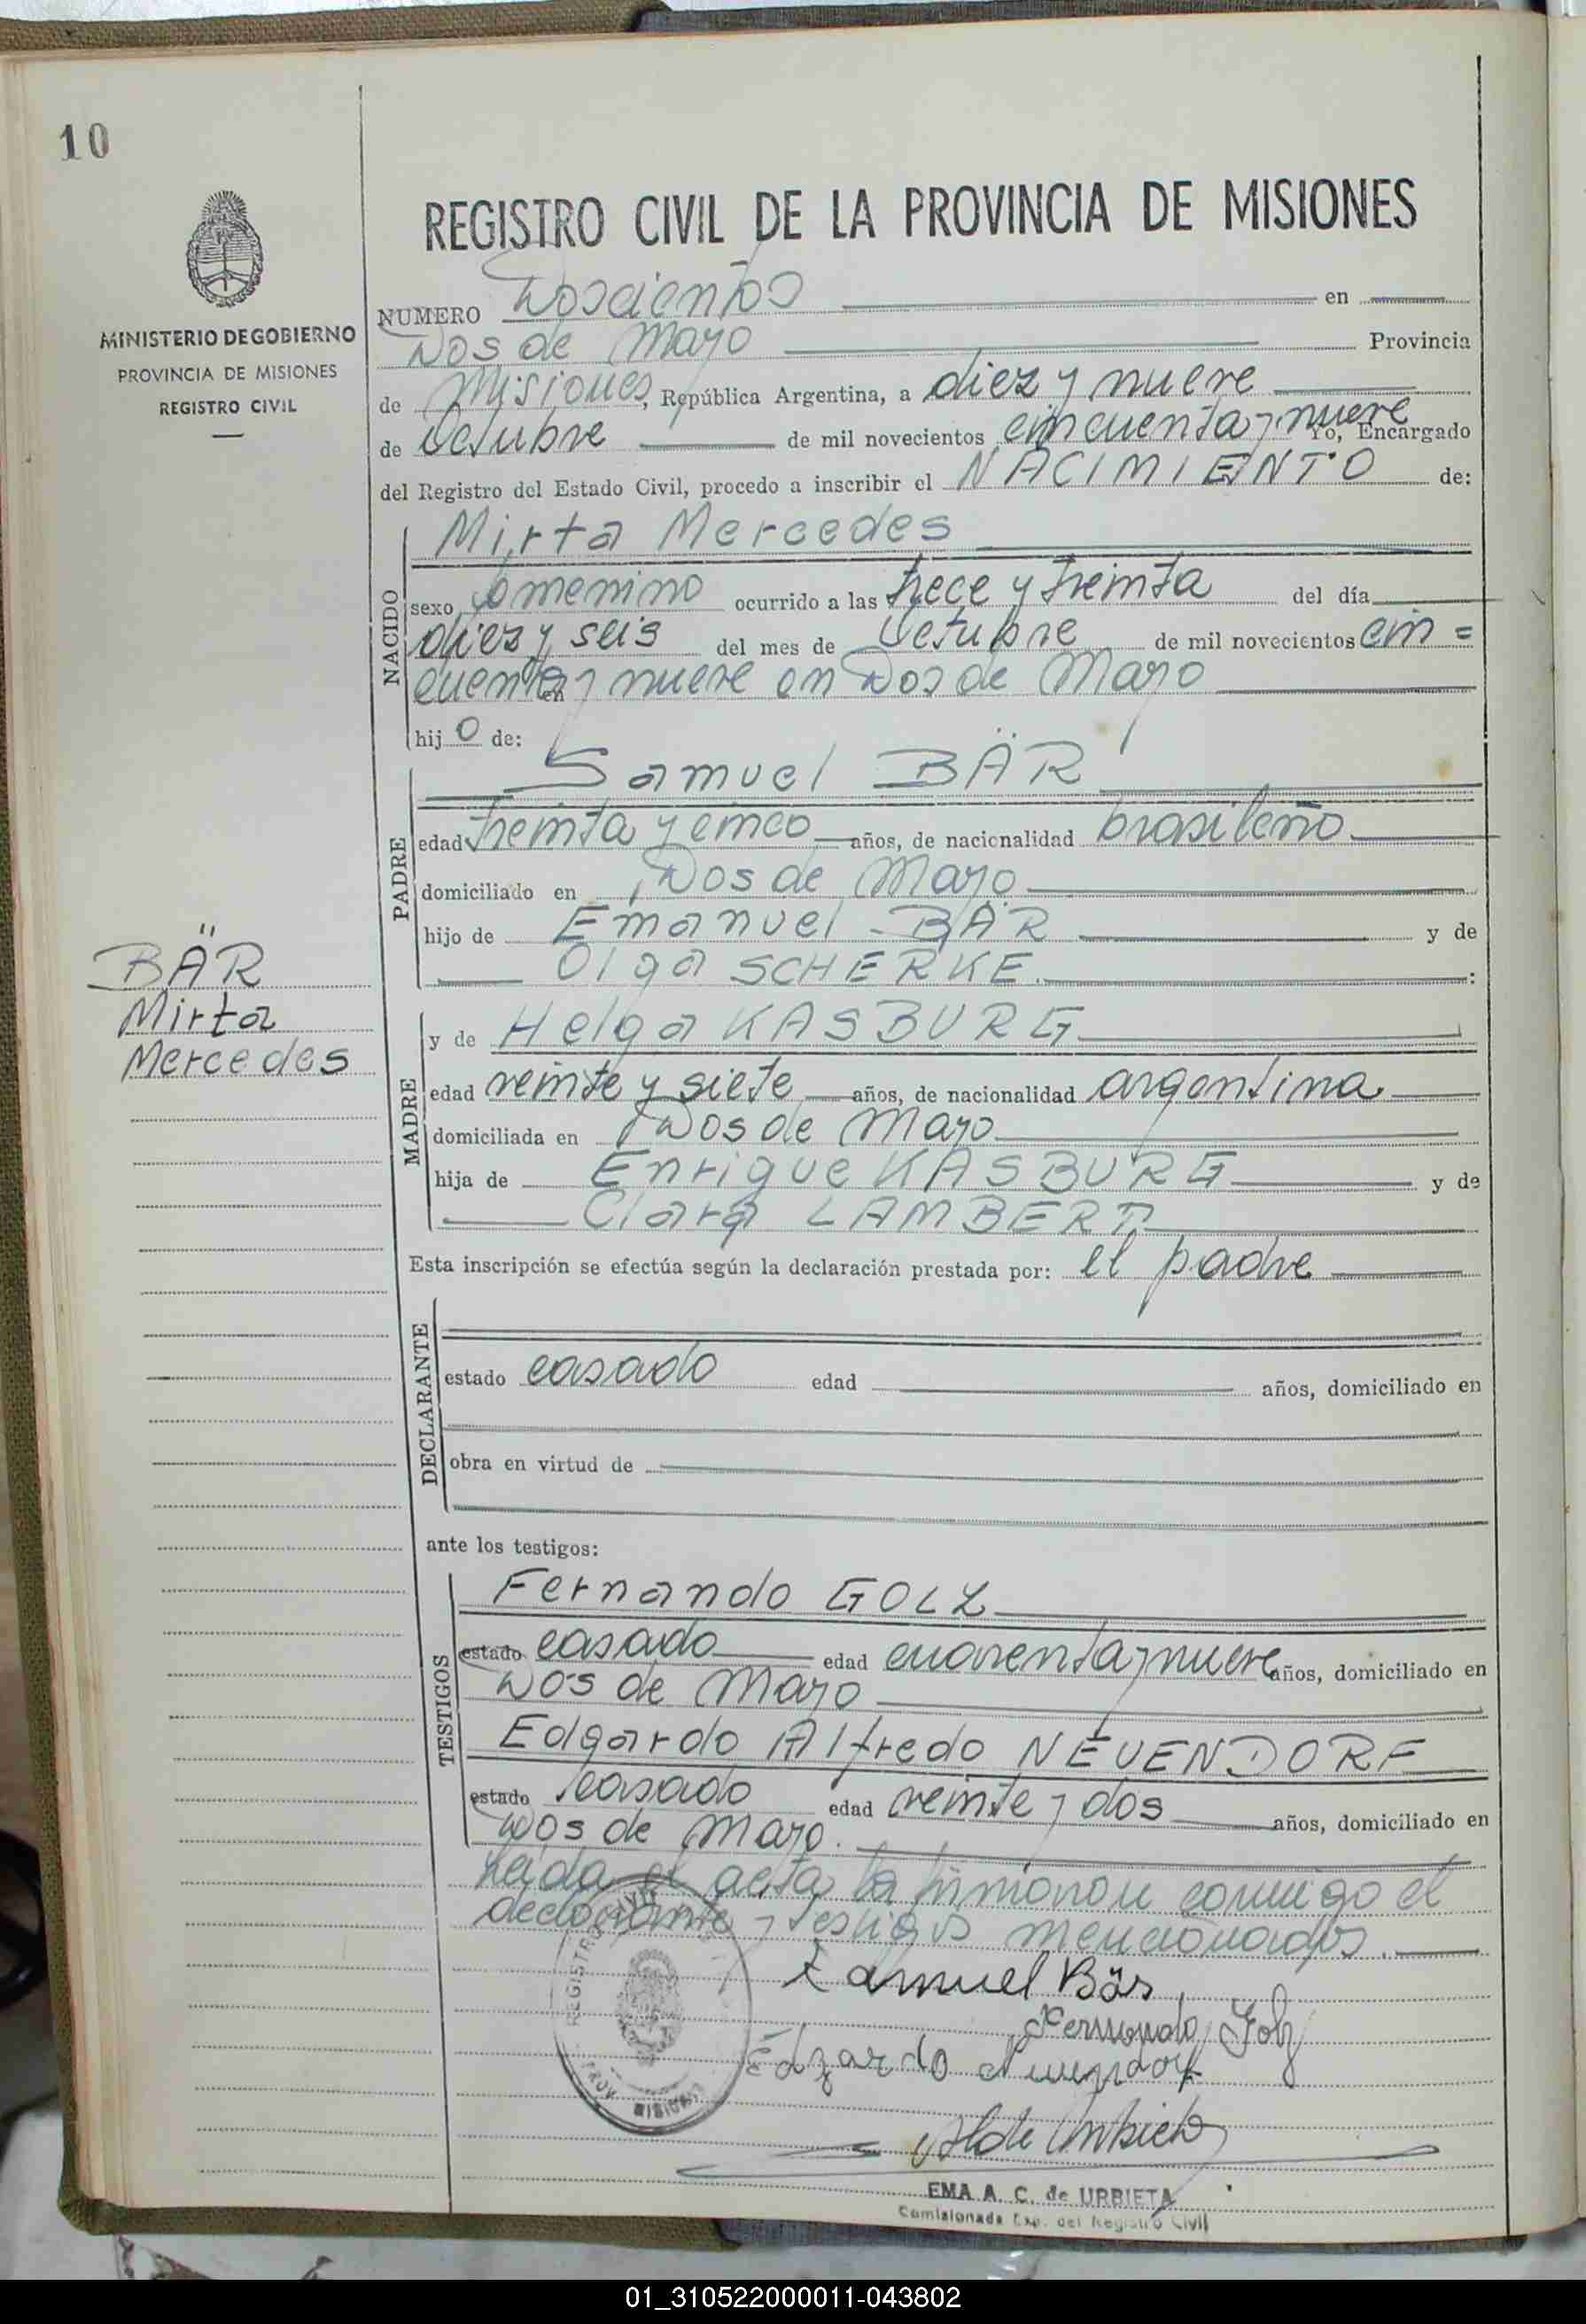 10
MINISTERIO DE GOBIERNO
PROVINCIA DE MISIONES
REGISTRO CIVIL
REGISTRO CIVIL DE LA PROVINCIA DE MISIONES
NUMERO Doscientos en
Dos de Mayo Provincia
de Misiones, República Argentina, a diez y nueve
de Octubre de mil novecientos cincuenta y nueve Yo, Encargado
del Registro del Estado Civil, procedo a inscribir el NACIMIENTO de:
NACIDO
Mirta Mercedes
sexo femenino ocurrido a las trece y treinta del día
diez y seis del mes de Octubre de mil novecientos cin=
cuenta y nueve en Dos de Mayo
hij o de:
PADRE
Samuel BÄR
edad treinta y cinco años, de nacionalidad brasileño
domiciliado en Dos de Mayo
hijo de Emanuel BÄR y de
Olga SCHERKE. :
BÄR
Mirta
Mercedes
MADRE
y de Helga KASBURG
edad veinte y siete años, de nacionalidad argentina
domiciliada en Dos de Mayo
hija de Enrique KASBURG y de
Clara LAMBERT
Esta inscripción se efectúa según la declaración prestada por: el padre
DECLARANTE
estado casado edad años, domiciliado en
obra en virtud de
ante los testigos:
TESTIGOS
Fernando GOLZ
estado casado edad cuarenta y nueve años, domiciliado en
Dos de Mayo
Edgardo Alfredo NEUENDORF
estado casado edad veinte y dos años, domiciliado en
Dos de Mayo.
Leida el acta la firmaron conmigo el
declarante y testigos mencionados.
Samuel Bär
Fernando Golz
Edgardo Neuendorf
REGISTRO CIVIL
PROV. MISIONES
EMA A. C. de URBIETA
Comisionada Exp. del Registro Civil
01_310522000011-043802